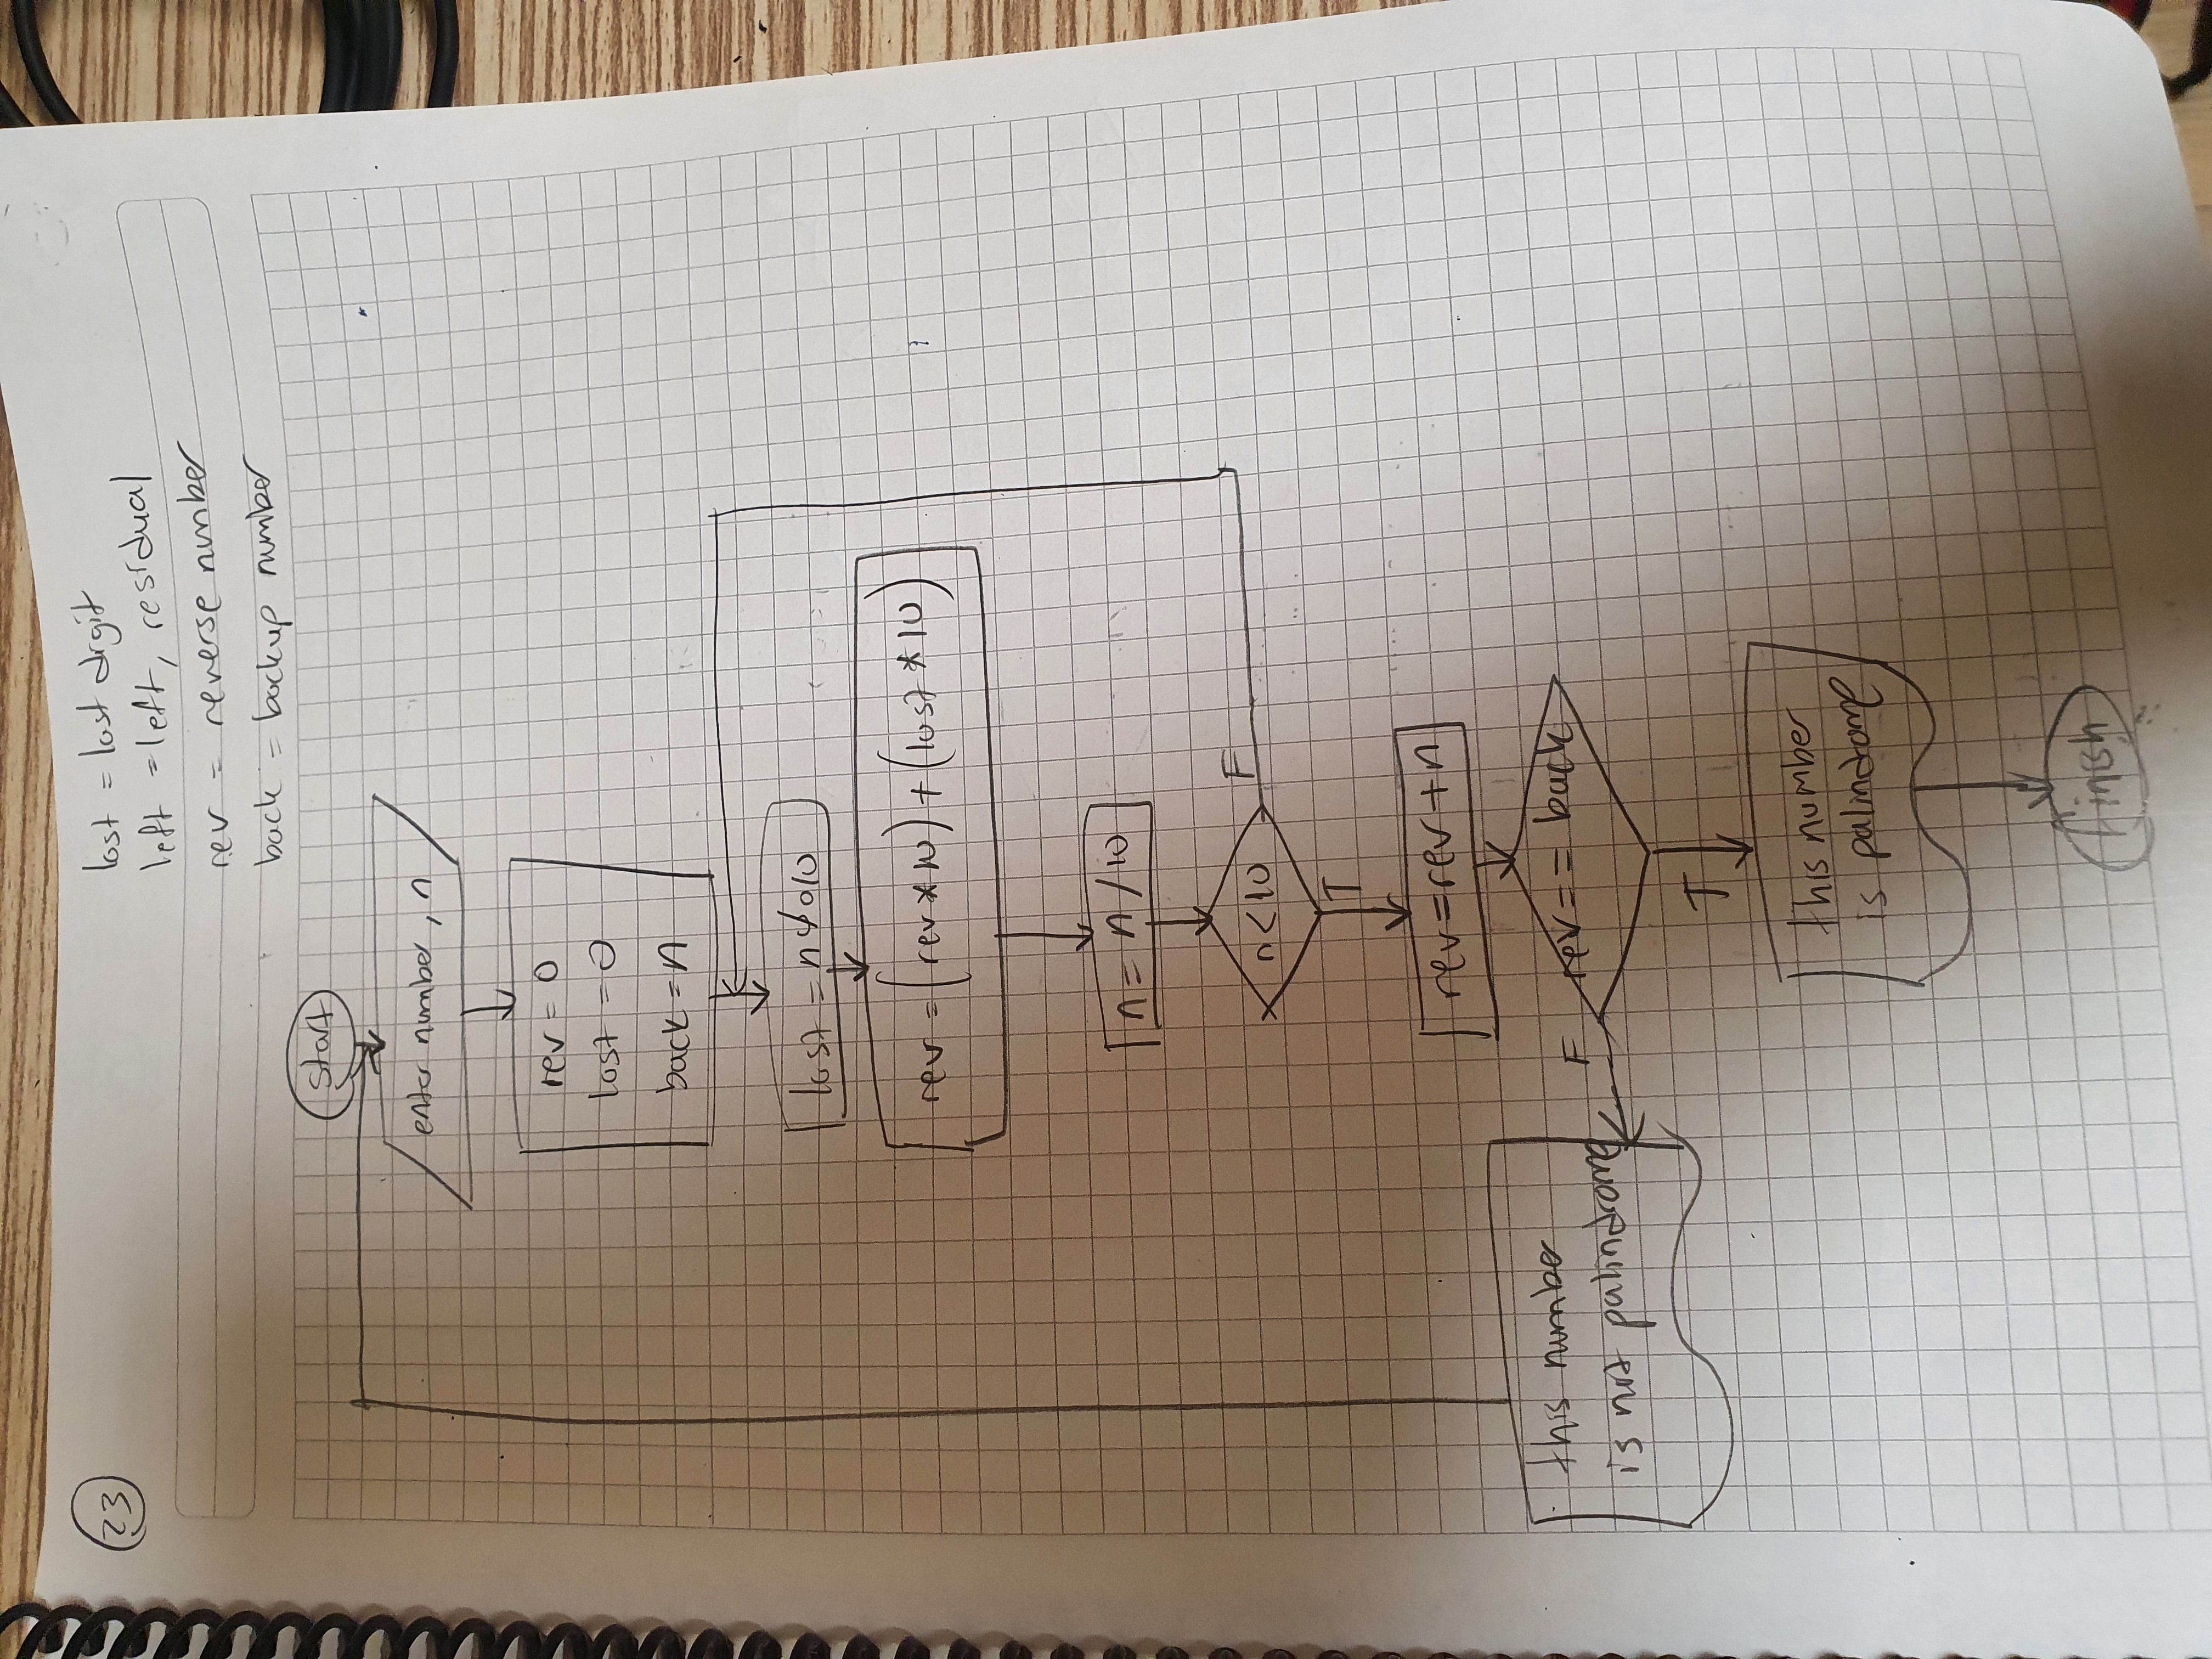 23
last = last digit
left = left, residual
rev = reverse number
back = backup number
start
enter number, n
rev = 0
last = 0
back = n
last = n%10
rev = (rev*10) + (last*10)
n = n/10
n<10
F
T
rev=rev+n
rev== back
F
this number
is not palindrome
T
this number
is palindrome
finish